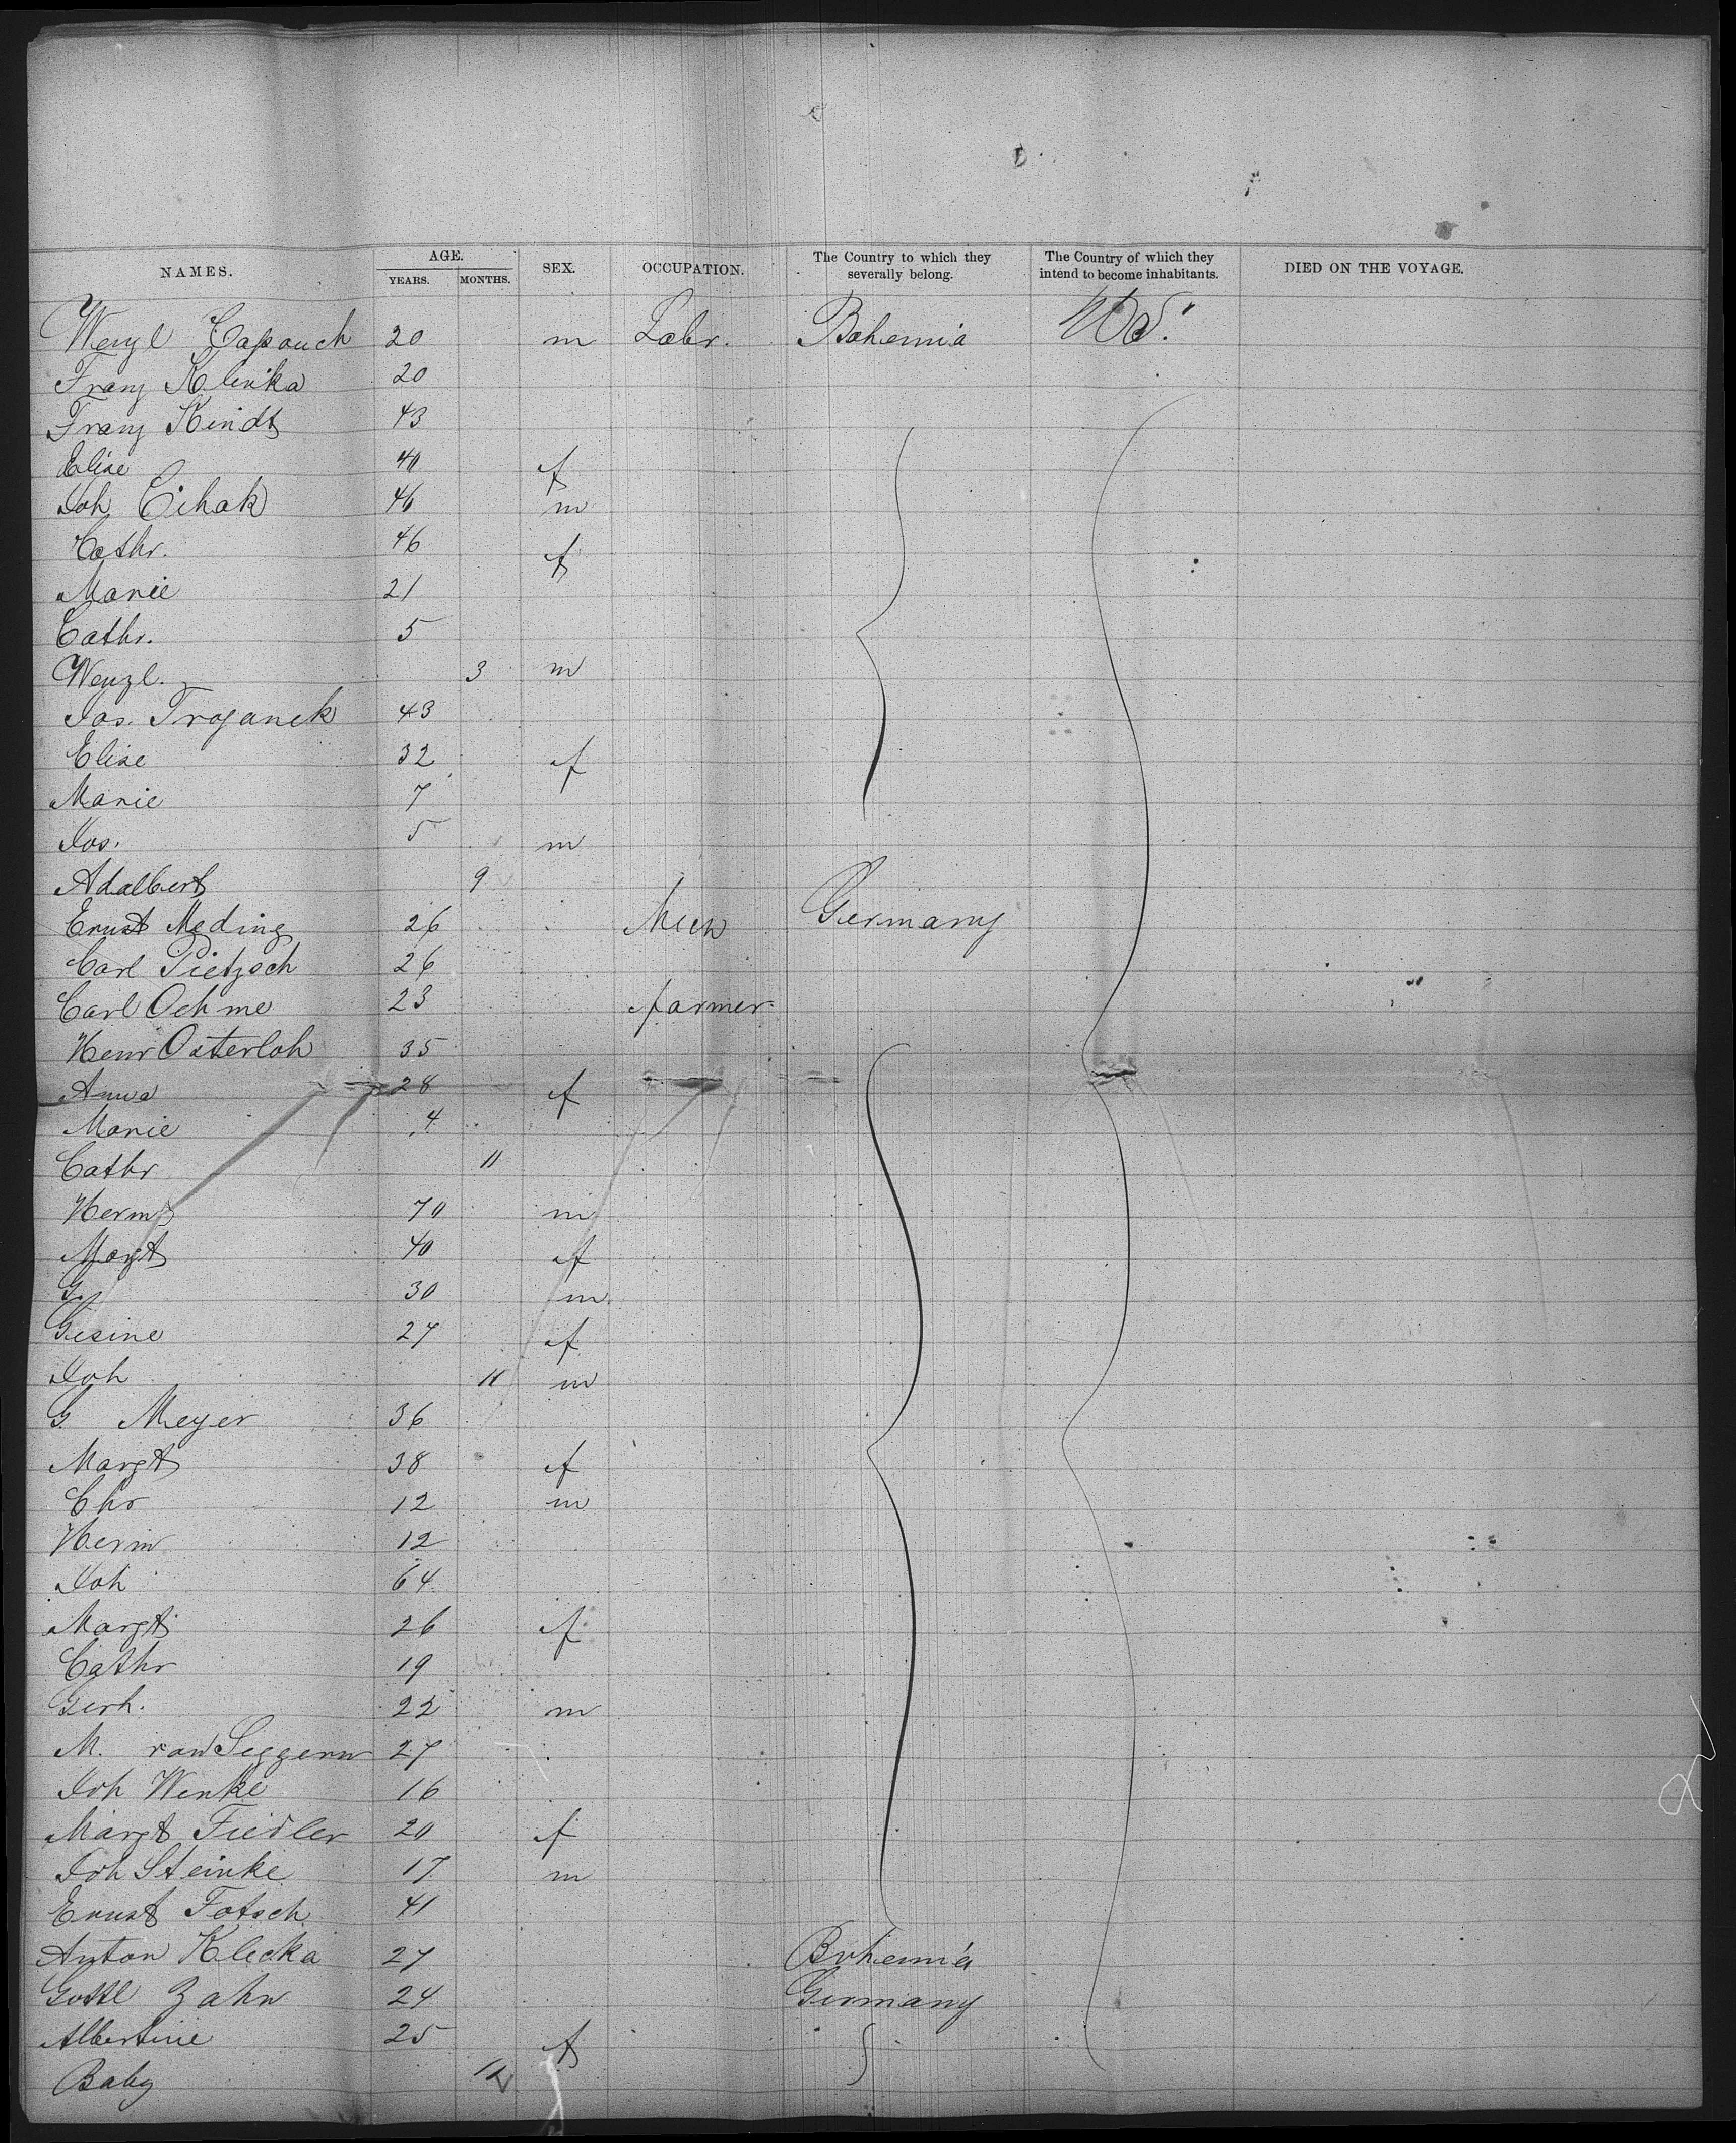 NAMES. AGE. YEARS. MONTHS. SEX. OCCUPATION. The Country to which they severally belong. The Country of which they intend to become inhabitants. DIED ON THE VOYAGE.
Wenzl Capouch 20 m Labr. Bohemia U.S.
Franz Klinka 20
Franz Kindt 43
Elise 40 f
Joh Cihak 46 m
Cathr. 46 f
Marie 21
Cathr. 5
Wenzl. 3 m
Jos. Trojanek 43
Elise 32 f
Marie 7
Jos. 5 m
Adalbert 9
Ernst Meding 26 Mech Germany
Carl Pietzsch 26
Carl Oehme 23 farmer
Henr Osterloh 35
Anna 28 f
Marie 4
Cathr 11
Herm 70 m
Margt 40 f
G. 30 m
Gesine 27 f
Joh 11 m
G. Meyer 36
Margt 38 f
Chr 12 m
Herm 12
Joh 64
Margt 26 f
Cathr 19
Gerh. 22 m
M. von Seggern 27
Joh Wenke 16
Margt Fiedler 20 f
Joh Steinke 17 m
Ernst Fotsch 41
Anton Klecka 27 Bohemia
Gottl Zahn 24 Germany
Albertine 25 f
Baby